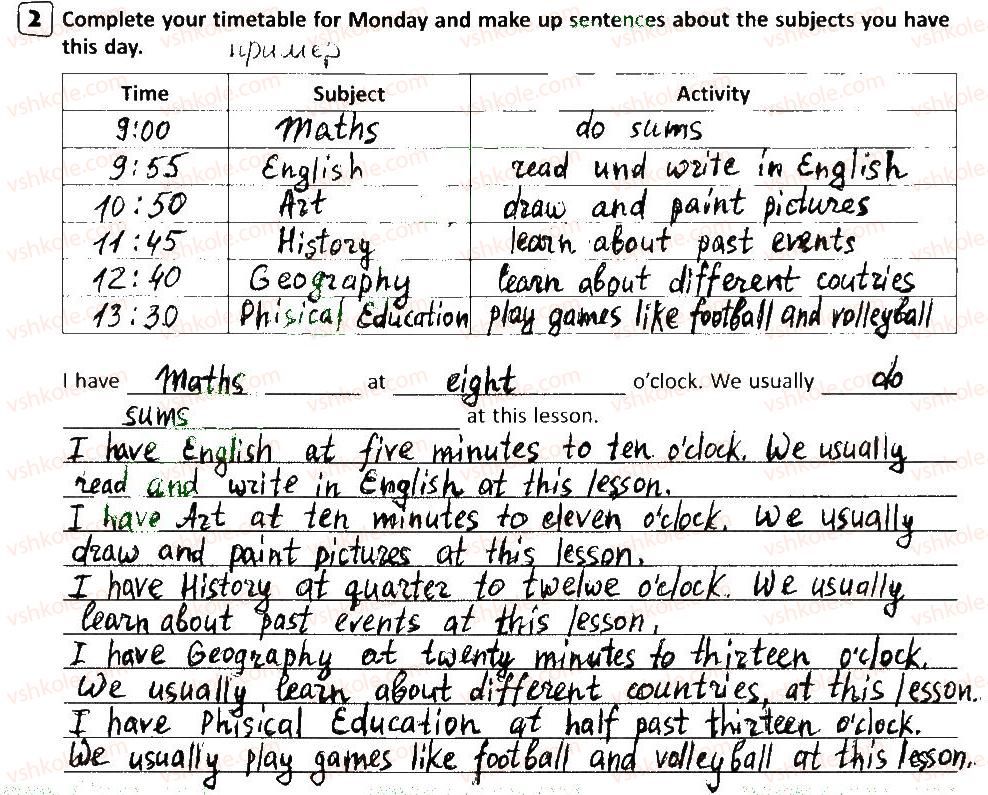 2 Complete your timetable for Monday and make up sentences about the subjects you have
this day. пример
Time Subject Activity
9:00 Maths do sums
9:55 English read und write in English
10:50 Art draw and paint pictures
11:45 History learn about past events
12:40 Geography learn about different coutries
13:30 Phisical Education play games like football and volleyball
I have Maths at eight o'clock. We usually do
sums at this lesson.
I have English at five minutes to ten o'clock. We usually
read and write in English at this lesson.
I have Art at ten minutes to eleven o'clock. We usually
draw and paint pictures at this lesson.
I have History at quarter to twelwe o'clock. We usually
learn about past events at this lesson.
I have Geography at twenty minutes to thirteen o'clock.
We usually learn about different countries, at this lesson.
I have Phisical Education at half past thirteen o'clock.
We usually play games like football and volleyball at this lesson.